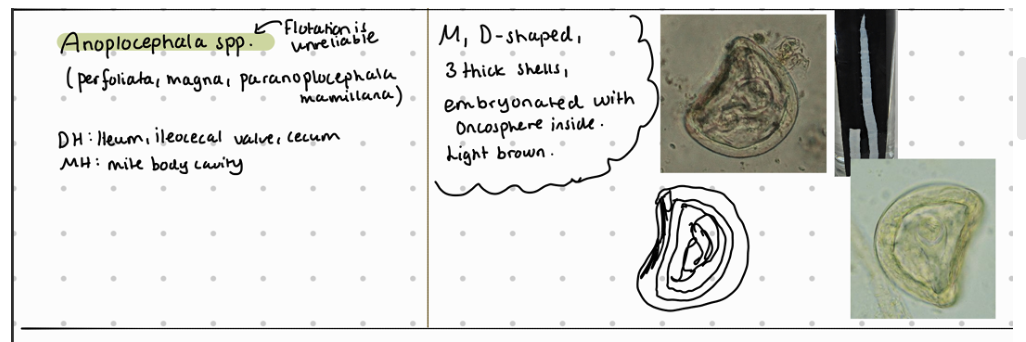 Anoplocephala spp.
Flotation is
unreliable
(perfoliata, magna, paranoplocephala
mamillana)
DH: Ileum, ileocecal valve, cecum
MH: mite body cavity
M, D-shaped,
3 thick shells,
embryonated with
Oncosphere inside.
Light brown.